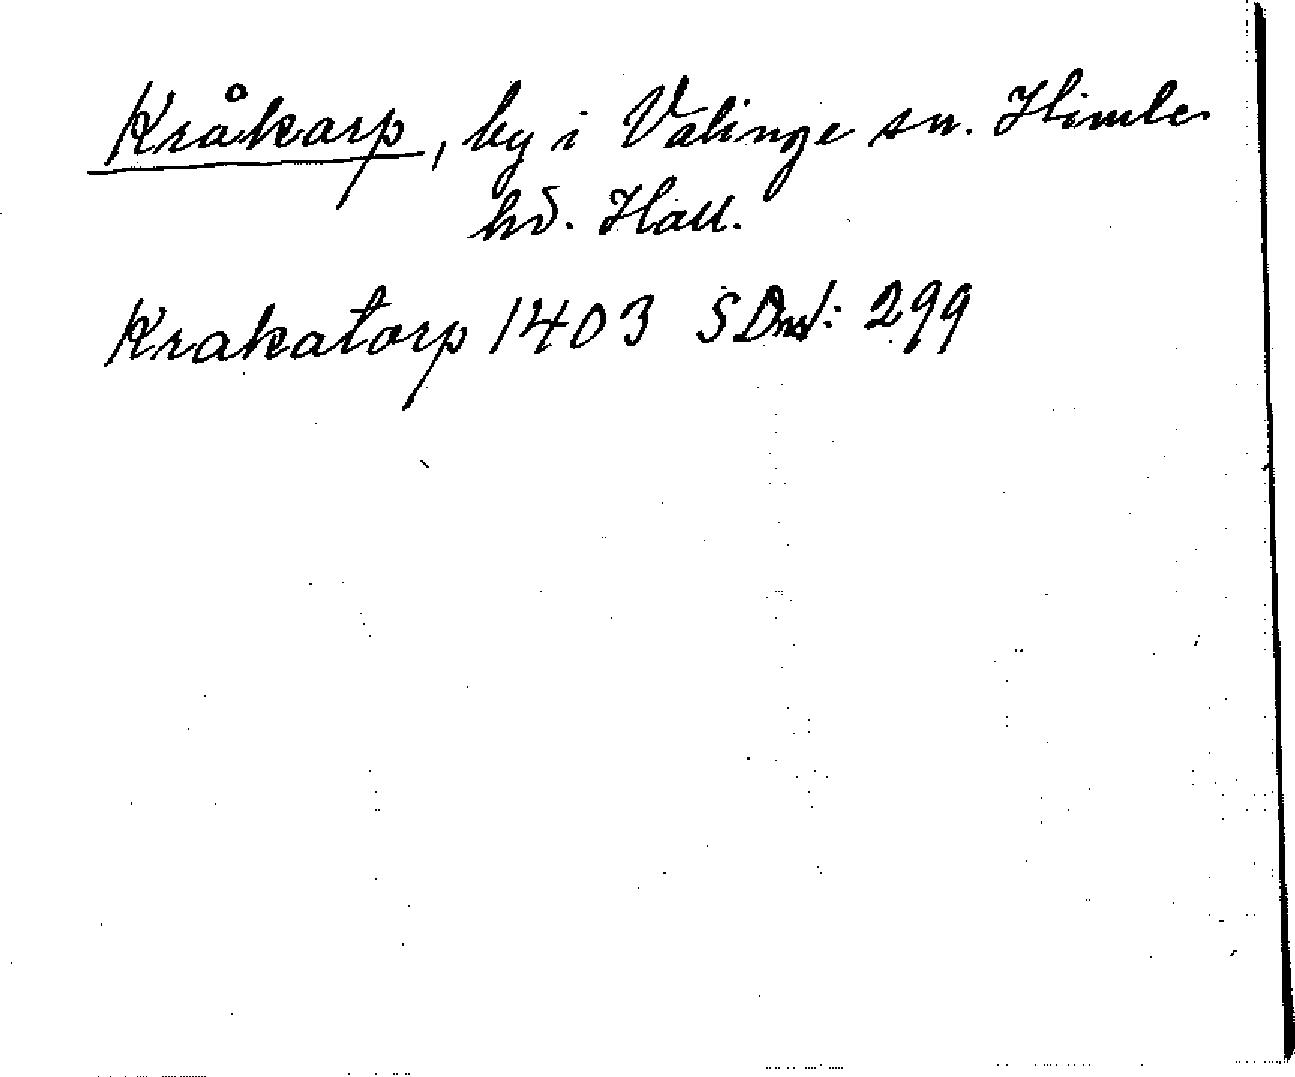 Kråkarp, by i Valinge sn. Himle
hd. Hall.
Krakatorp 1403 SDns1: 299